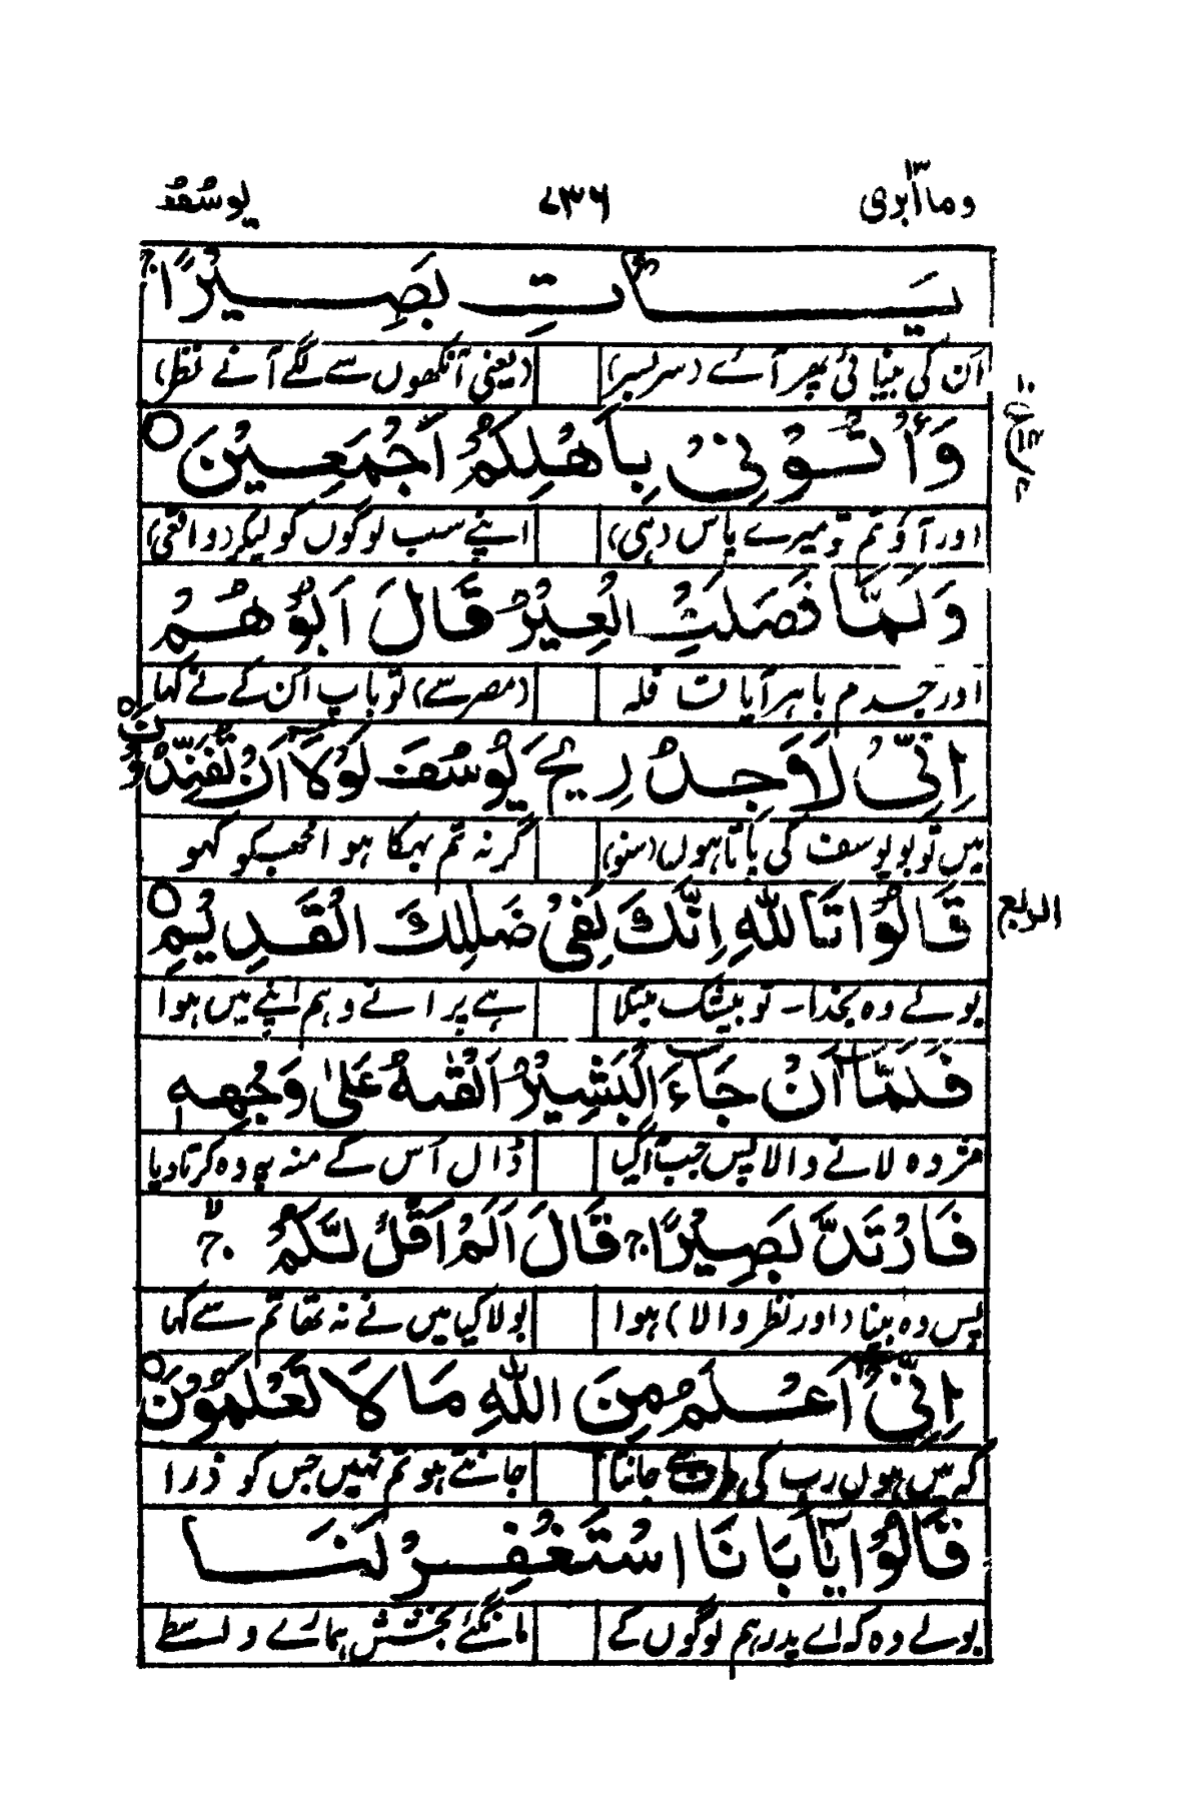 وما ابری ۱۳ ۷۳۶ یوسف
یَاْتِ بَصِیْرًا ۚ
ان کی بینائی پھر آئے (سربسر) (یعنی آنکھوں سے لگے آنے نظر)
وَاْتُوْنِیْ بِاَهْلِکُمْ اَجْمَعِیْنَ ○
اور آؤ تم تو میرے پاس (ہی) اپنے سب لوگوں کو لیکر (واقعی)
وَلَمَّا فَصَلَتِ الْعِیْرُ قَالَ اَبُوْهُمْ
اور جسدم باہر آیا قافلہ (مصر سے) تو باپ اُن کے نے کہا
اِنِّیْ لَاَجِدُ رِیْحَ یُوْسُفَ لَوْلَاۤ اَنْ تُفَنِّدُوْنِ
میں تو بو یوسف کی پاتا ہوں (سنو) گر نہ تم بہکا ہوا مجھکو کہو
قَالُوْا تَاللّٰهِ اِنَّکَ لَفِیْ ضَلٰلِکَ الْقَدِیْمِ ○
الربع
بولے وہ بخدا۔ تو بیشک مبتلا ہے پرانے وہم اپنے میں ہوا
فَلَمَّاۤ اَنْ جَآءَ الْبَشِیْرُ اَلْقٰىهُ عَلٰی وَجْهِهٖ
مژدہ لانے والا پس جب آگیا ڈال اس کے منہ پہ وہ کرتا دیا
فَارْتَدَّ بَصِیْرًا ۚ قَالَ اَلَمْ اَقُلْ لَّکُمْ ۚ لا
پس وہ بینا (اور نظر والا) ہوا بولا کیا میں نے نہ تھا تم سے کہا
اِنِّیْۤ اَعْلَمُ مِنَ اللّٰهِ مَا لَا تَعْلَمُوْنَ ○
کہ میں ہوں رب کی جانتا جانتے ہو تم نہیں جس کو ذرا
قَالُوْا یٰۤاَبَانَا اسْتَغْفِرْ لَنَا
بولے وہ کہ اے پدر ہم لوگوں کے مانگئے بخشش ہمارے واسطے